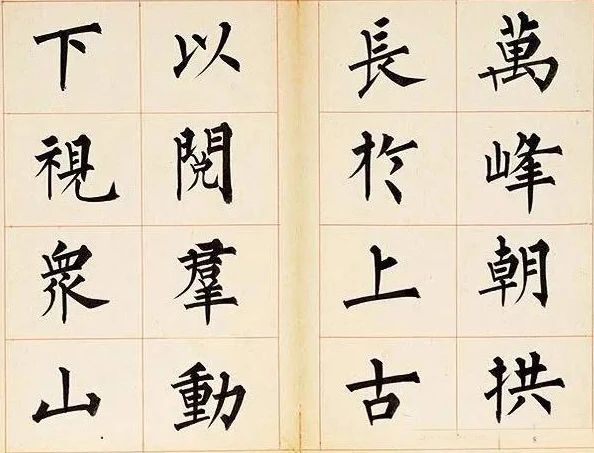 萬峰朝拱
長於上古
以閱羣動
下視眾山